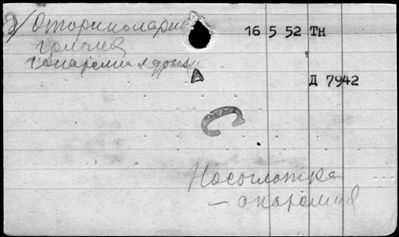 3/ Оториноларин- 16 5 52 Тн
гология
Д 7942
С
Носоглотка
— анатомия